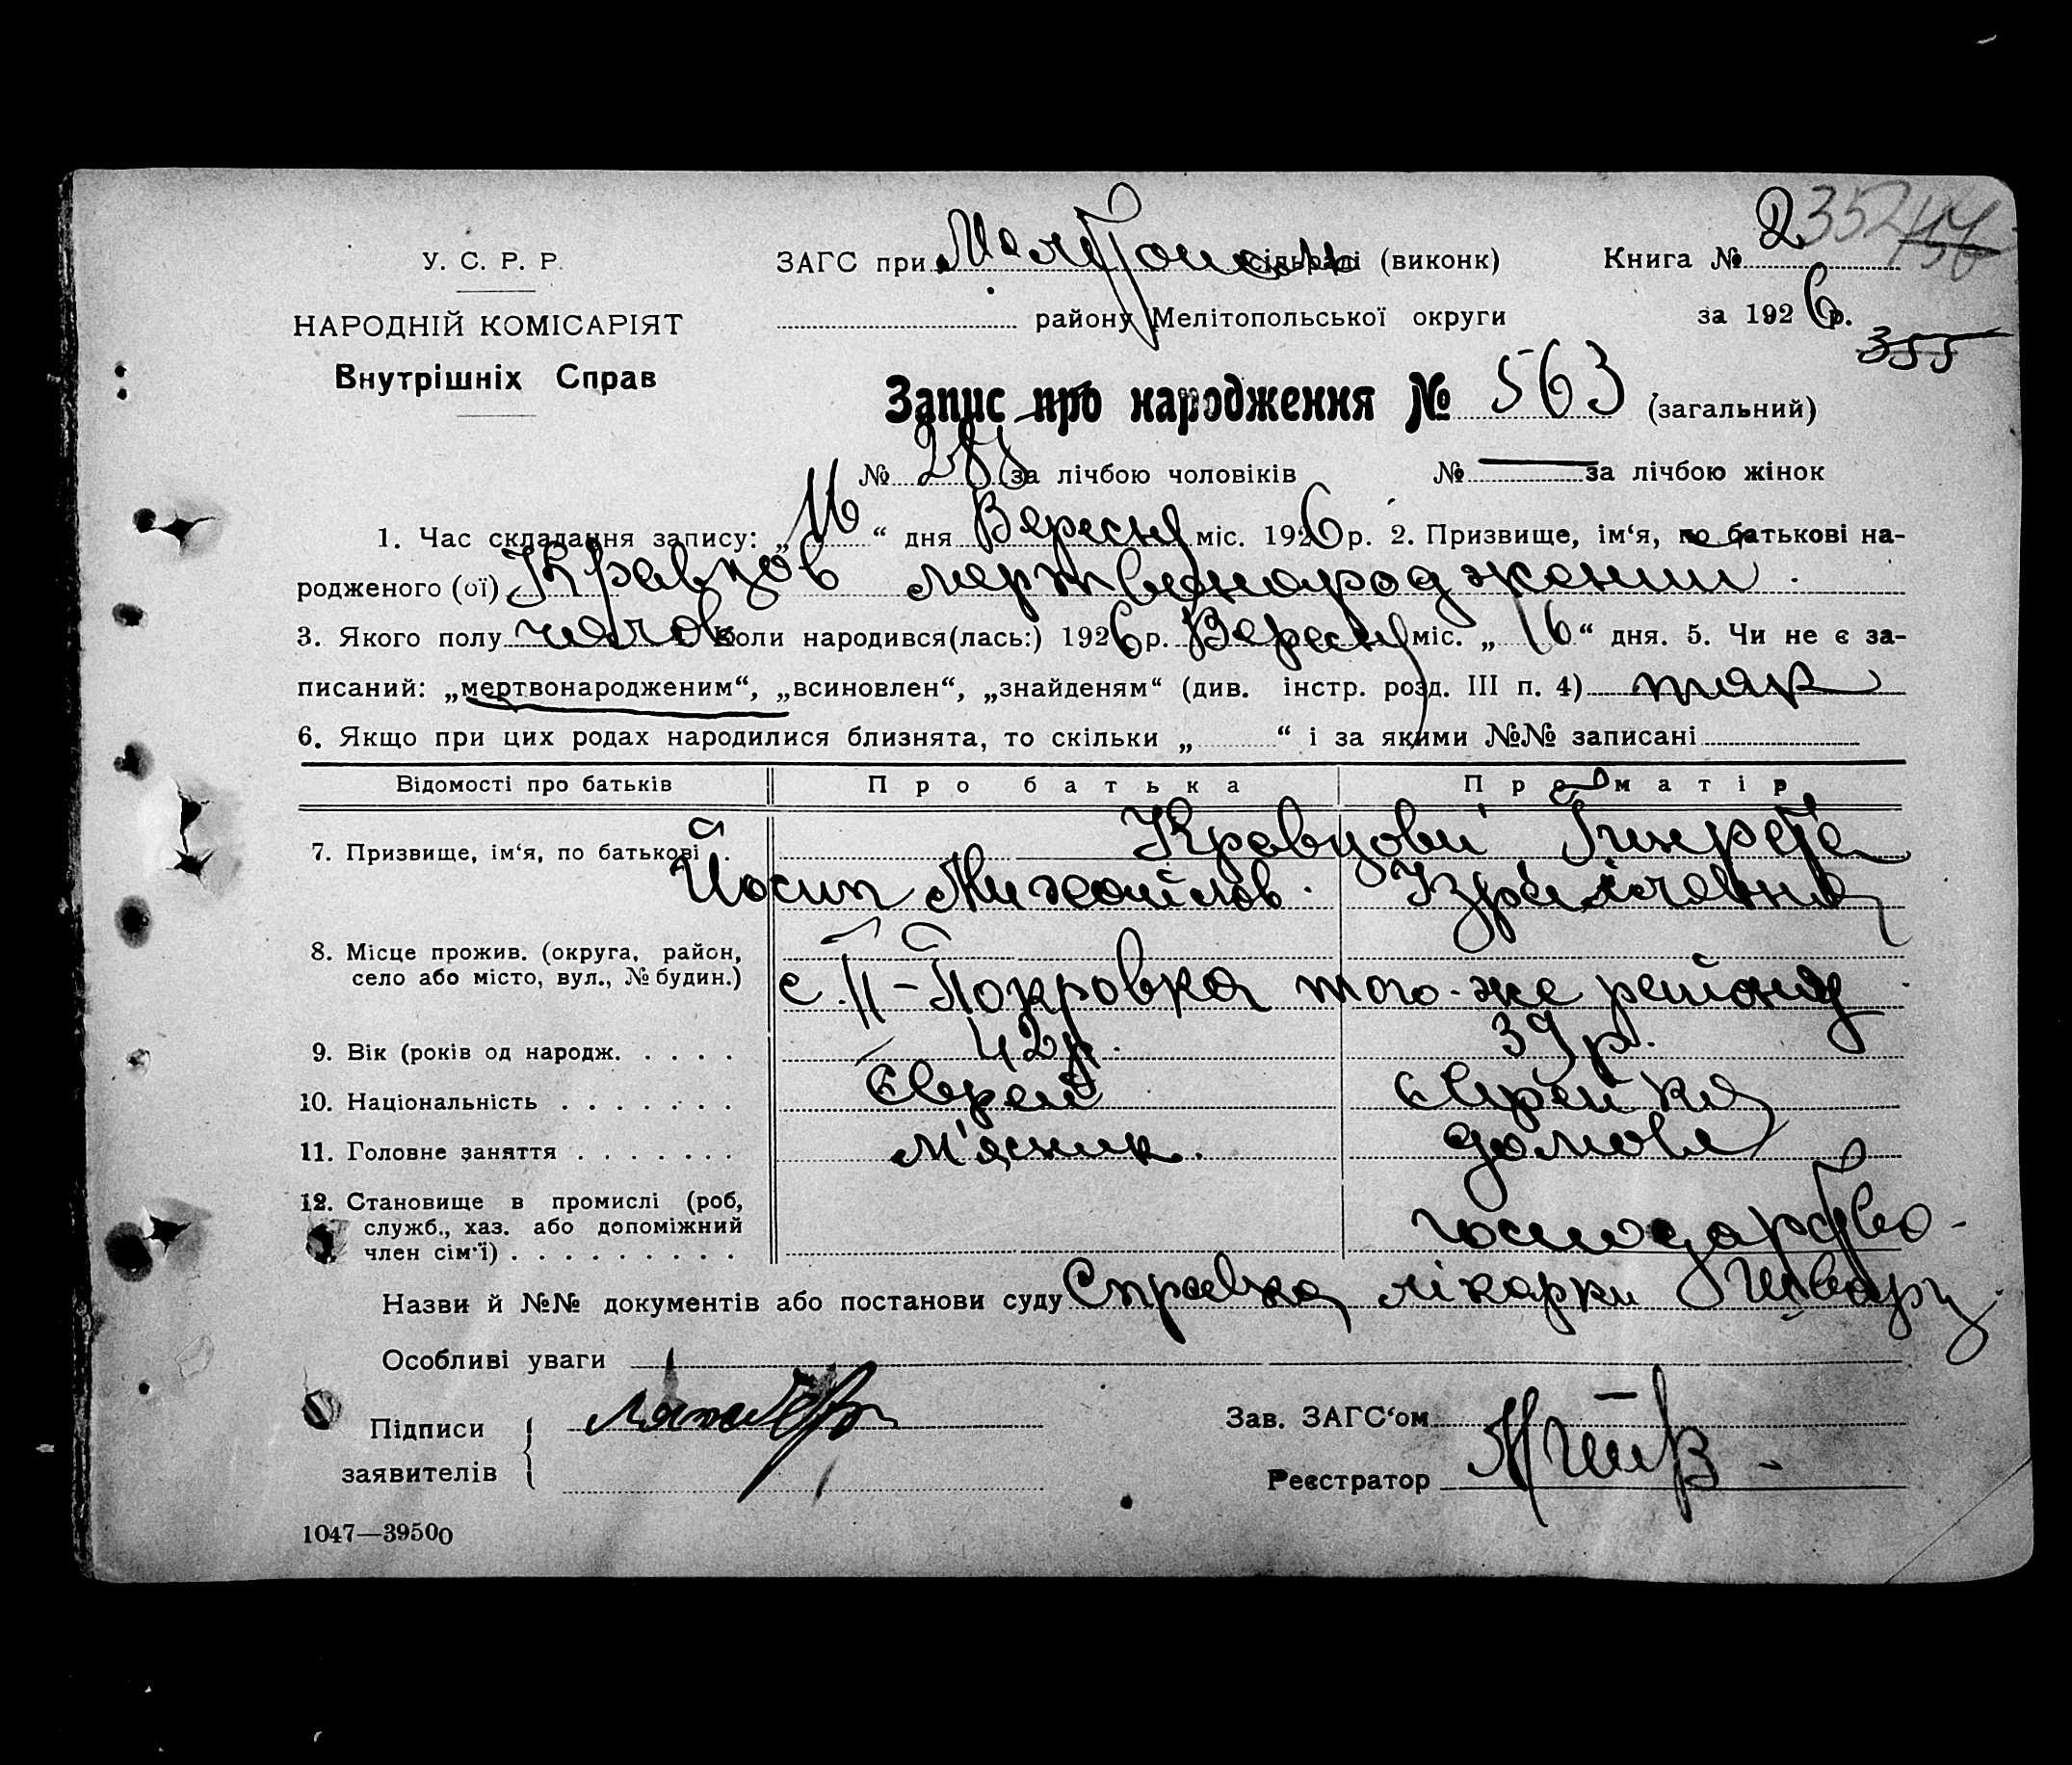 У. С. Р. Р.
НАРОДНІЙ КОМІСАРІЯТ
Внутрішніх Справ
ЗАГС при сільраді (виконк)
Книга № 2 352
району Мелітопольської округи
за 1926 р.
355
Запис про народження № 563 (загальний)
№ за лічбою чоловіків № — за лічбою жінок
1. Час складання запису: „16“ дня Вересня міс. 1926 р. 2. Призвище, ім‘я, по батькові на-
родженого (ої) Кравцов мертвонароджении
3. Якого полу чолов Коли народився(лась:) 1926 р. Вересня міс. „16“ дня. 5. Чи не є за-
писаний: „мертвонародженим“, „всиновлен“, „знайденям“ (див. інстр. розд. III п. 4) так
6. Якщо при цих родах народилися близнята, то скільки „ “ і за якими №№ записані
Відомості про батьків Про батька Про матір
7. Призвище, ім‘я, по батькові Кравцови
Йосип Михайлов. Ізраілевна
8. Місце прожив. (округа, район,
село або місто, вул., № будин.)
с. Н-Покровка того-же району
9. Вік (років од народж. 42 р. 39 р.
10. Національність Єврей Єврейка
11. Головне заняття м'ясник. домове
господарство-
12. Становище в промислі (роб,
служб., хаз. або допоміжний
член сім‘ї)
Назви й №№ документів або постанови суду Справка лікарки
Особливі уваги
Підписи
заявителів
Зав. ЗАГС‘ом
Реєстратор
1047—39500